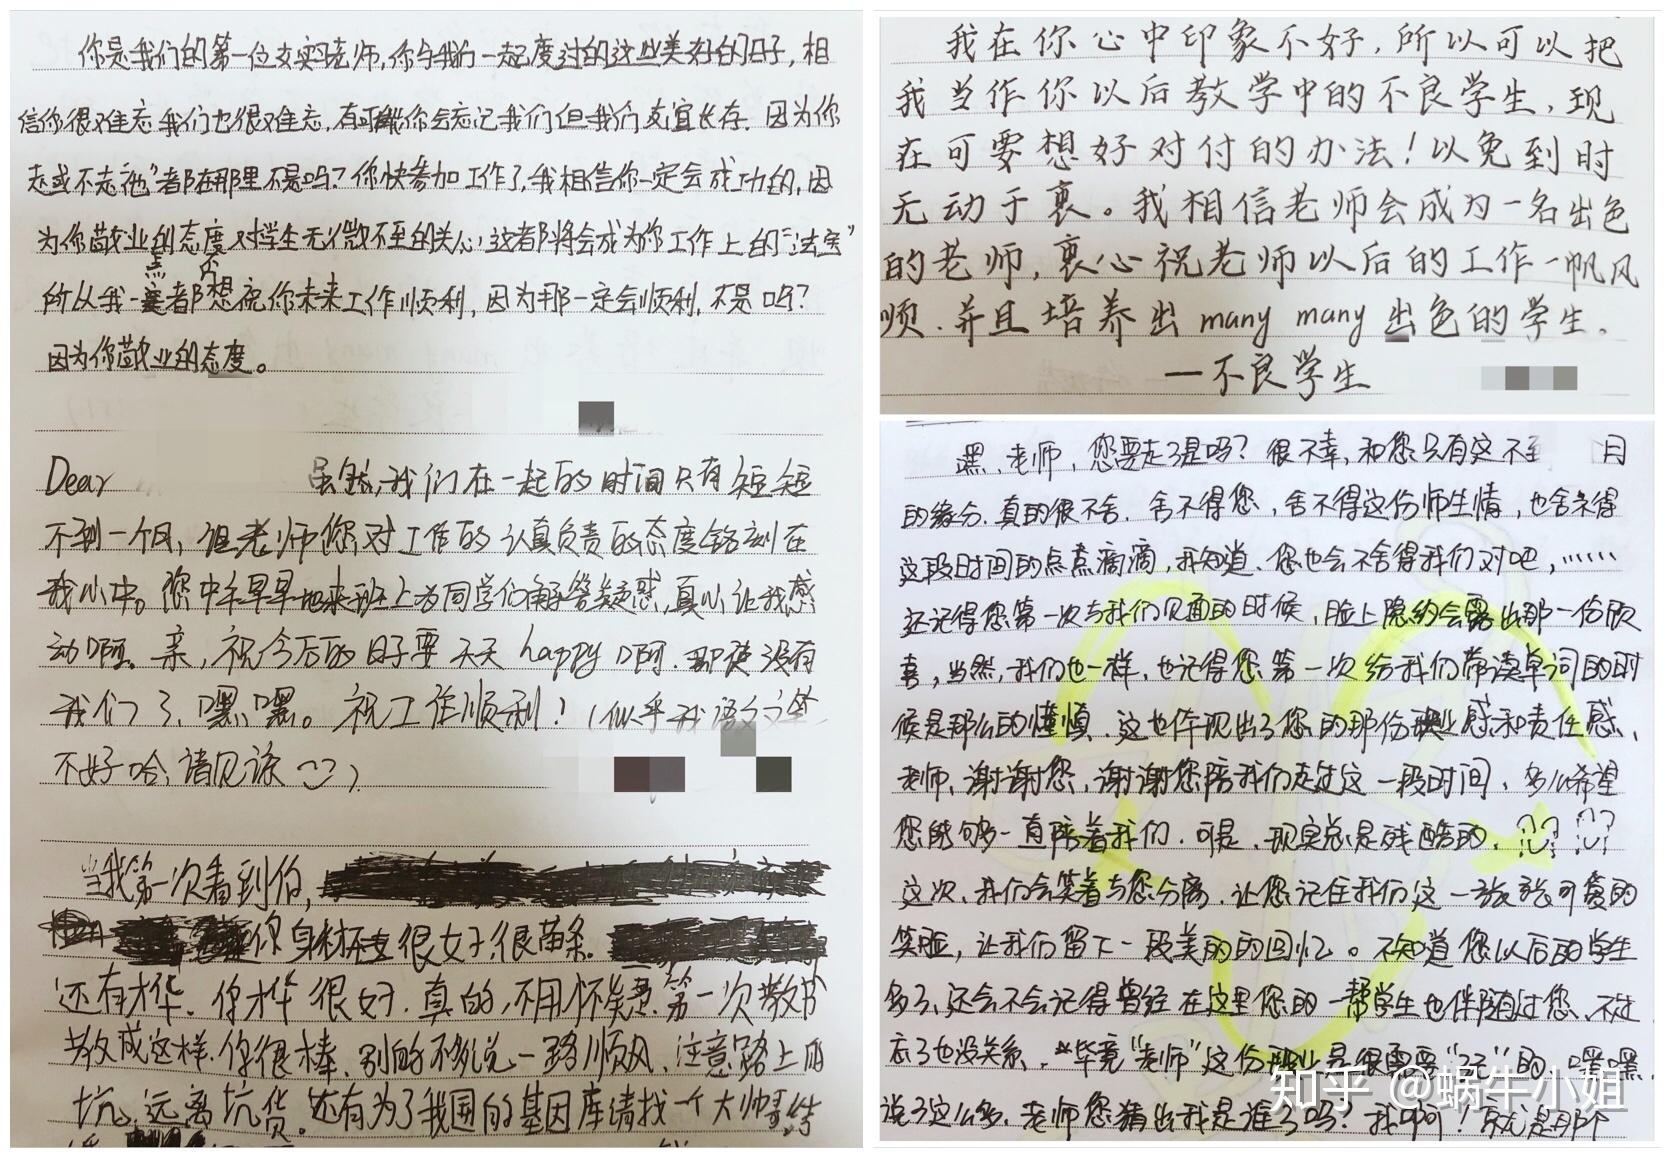 你是我们的第一位支实习老师,你与我们一起度过的这些美好的日子,相
信你很难忘我们也很难忘,有可能你会忘记我们但我们友宜长存.因为你
走或不走他"都在那里不是吗?你快参加工作了,我相信你一定会成功的,因
为你敬业的态度对学生无微不至的关心,这都将会成为你工作上的"法宝"
点 不
所以我一都想祝你未来工作顺利,因为那一定会顺利,不是吗?
因为你敬业的态度。
Dear 虽然,我们在一起的时间只有短短
不到一个月,但老师您对工作的认真负责的态度铭刻在
我心中。您中午早早地来班上为同学们解答疑惑,真心让我感
动啊。亲,祝今后的日子要天天happy啊.那使没有
我们了,嘿,嘿。祝工作顺利!(似乎我语文文笔
不好哈,请见谅)
当我第一次看到你,
你身材不支很好,很苗条。
还有才华.你才华很好.真的,不用怀疑.第一次教书
教成这样,你很棒.别的不多说,一路顺风,注意路上的
坑,远离坑货.还有为了我国的基因库请找一个大帅哥,
我在你心中印象不好,所以可以把
我当作你以后教学中的不良学生,现
在可要想好对付的办法!以免到时
无动于衷。我相信老师会成为一名出色
的老师,衷心祝老师以后的工作一帆风
顺.并且培养出many many出色的学生.
—不良学生
嘿,老师,您要走了是吗?很不幸,和您只有这不到 月
的缘分.真的很不舍.舍不得您,舍不得这份师生情,也舍不得
这段时间的点点滴滴,我知道、您也会不舍得我们对吧,……
还记得您第一次与我们见面的时候,脸上隐约会露出那一份欣
喜,当然,我们也一样,也记得您第一次给我们带读单词的时
候是那么的谨慎.这也体现出了您的那份职业感和责任感、
老师,谢谢您,谢谢您陪我们走过这一段时间,多么希望
您能够一直陪着我们.可是,现实总是残酷的.
这次,我们会笑着与您分离.让您记住我们这一张张可爱的
笑脸,让我们留下一段美的的回忆。不知道您以后的学生
多了,还会不会记得曾经在这里您的一帮学生也伴随过您、不过
忘了也没关系.毕竟"老师"这份职业是很需要"忘"的.嘿嘿.
说了这么多,老师您猜出我是谁了吗?我啊!就是那个
知乎 @蜗牛小姐